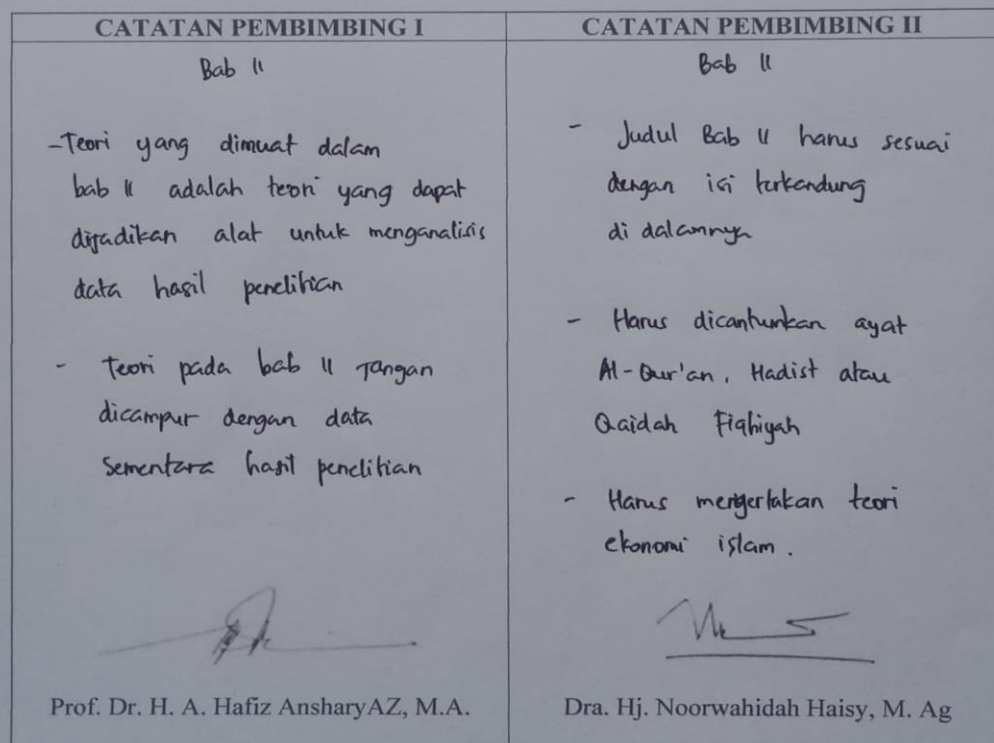 CATATAN PEMBIMBING I
Bab II
-Teori yang dimuat dalam
bab II adalah teori yang dapat
dijadikan alat untuk menganalisis
data hasil penelitian
- Teori pada bab II Jangan
dicampur dengan data
Sementara hasil penelitian
Prof. Dr. H. A. Hafiz AnsharyAZ, M.A.
CATATAN PEMBIMBING II
Bab II
- Judul Bab II harus sesuai
dengan isi terkandung
di dalamnya
- Harus dicantumkan ayat
Al-Qur'an, Hadist atau
Qaidah Fiqhiyah
- Harus mengertakan teori
ekonomi islam.
Dra. Hj. Noorwahidah Haisy, M. Ag